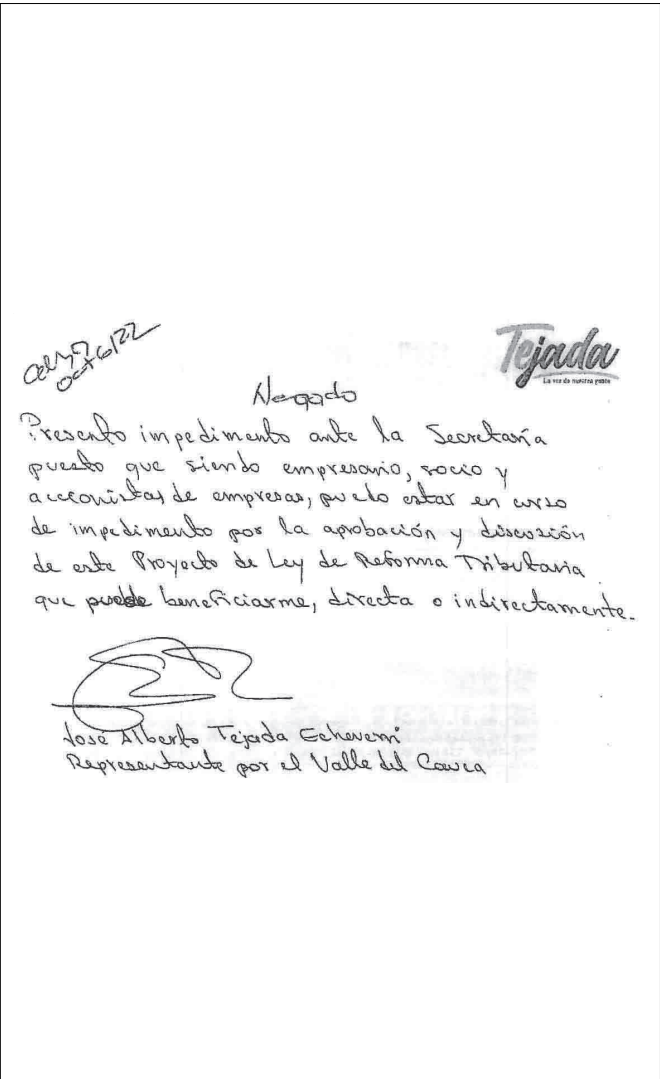 oct 6/22
Tejada
La voz de nuestra gente
Negado
Presento impedimento ante la Secretaría
puesto que siendo empresario, socio y
accionistas de empresas, puedo estar en curso
de impedimento por la aprobación y discusión
de este Proyecto de Ley de Reforma Tributaria
que puede beneficiarme, directa o indirectamente.
José Alberto Tejada Echeverri
Representante por el Valle del Cauca